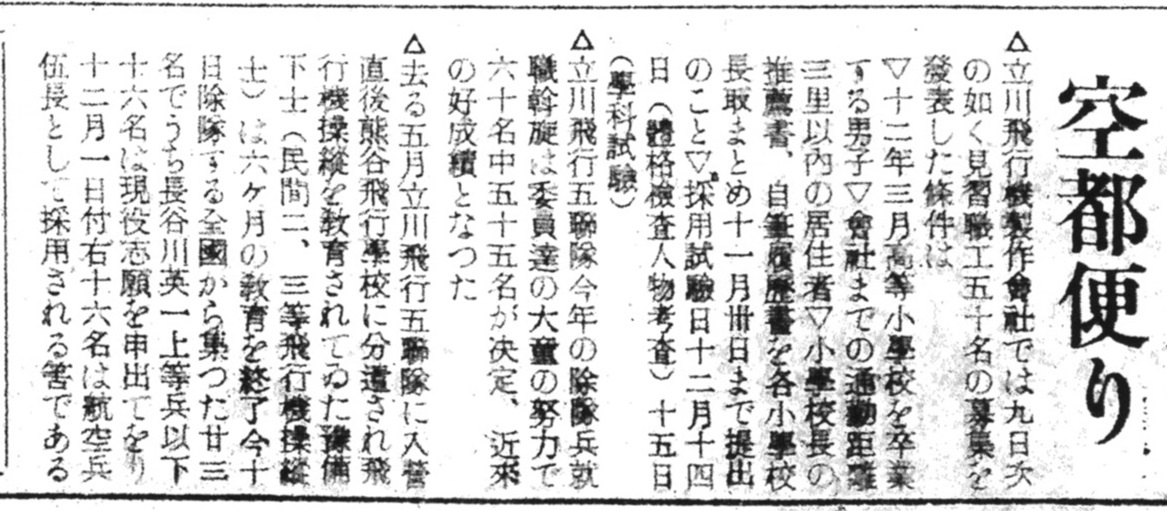 空都便り
△立川飛行機製作會社では九日次
の如く見習職工五十名の募集を
發表した條件は
▽十二年三月高等小學校を卒業
する男子▽會社までの通勤距離
三里以內の居住者▽小學校長の
推薦書、自筆履歷書を各小學校
長取まとめ十一月卅日まで提出
のこと▽採用試驗日十二月十四
日（體格檢査人物考査）十五日
（學科試驗）
△立川飛行五聯隊今年の除隊兵就
職斡旋は委員達の大童の努力で
六十名中五十五名が決定、近來
の好成績となつた
△去る五月立川飛行五聯隊に入營
直後熊谷飛行學校に分遣され飛
行機操縱を敎育されてゐた豫備
下士（民間二、三等飛行機操縱
士）は六ケ月の敎育を終了今十
日除隊する全國から集つた廿三
名でうち長谷川英一上等兵以下
十六名は現役志願を申出てをり
十二月一日付右十六名は航空兵
伍長として採用される筈である